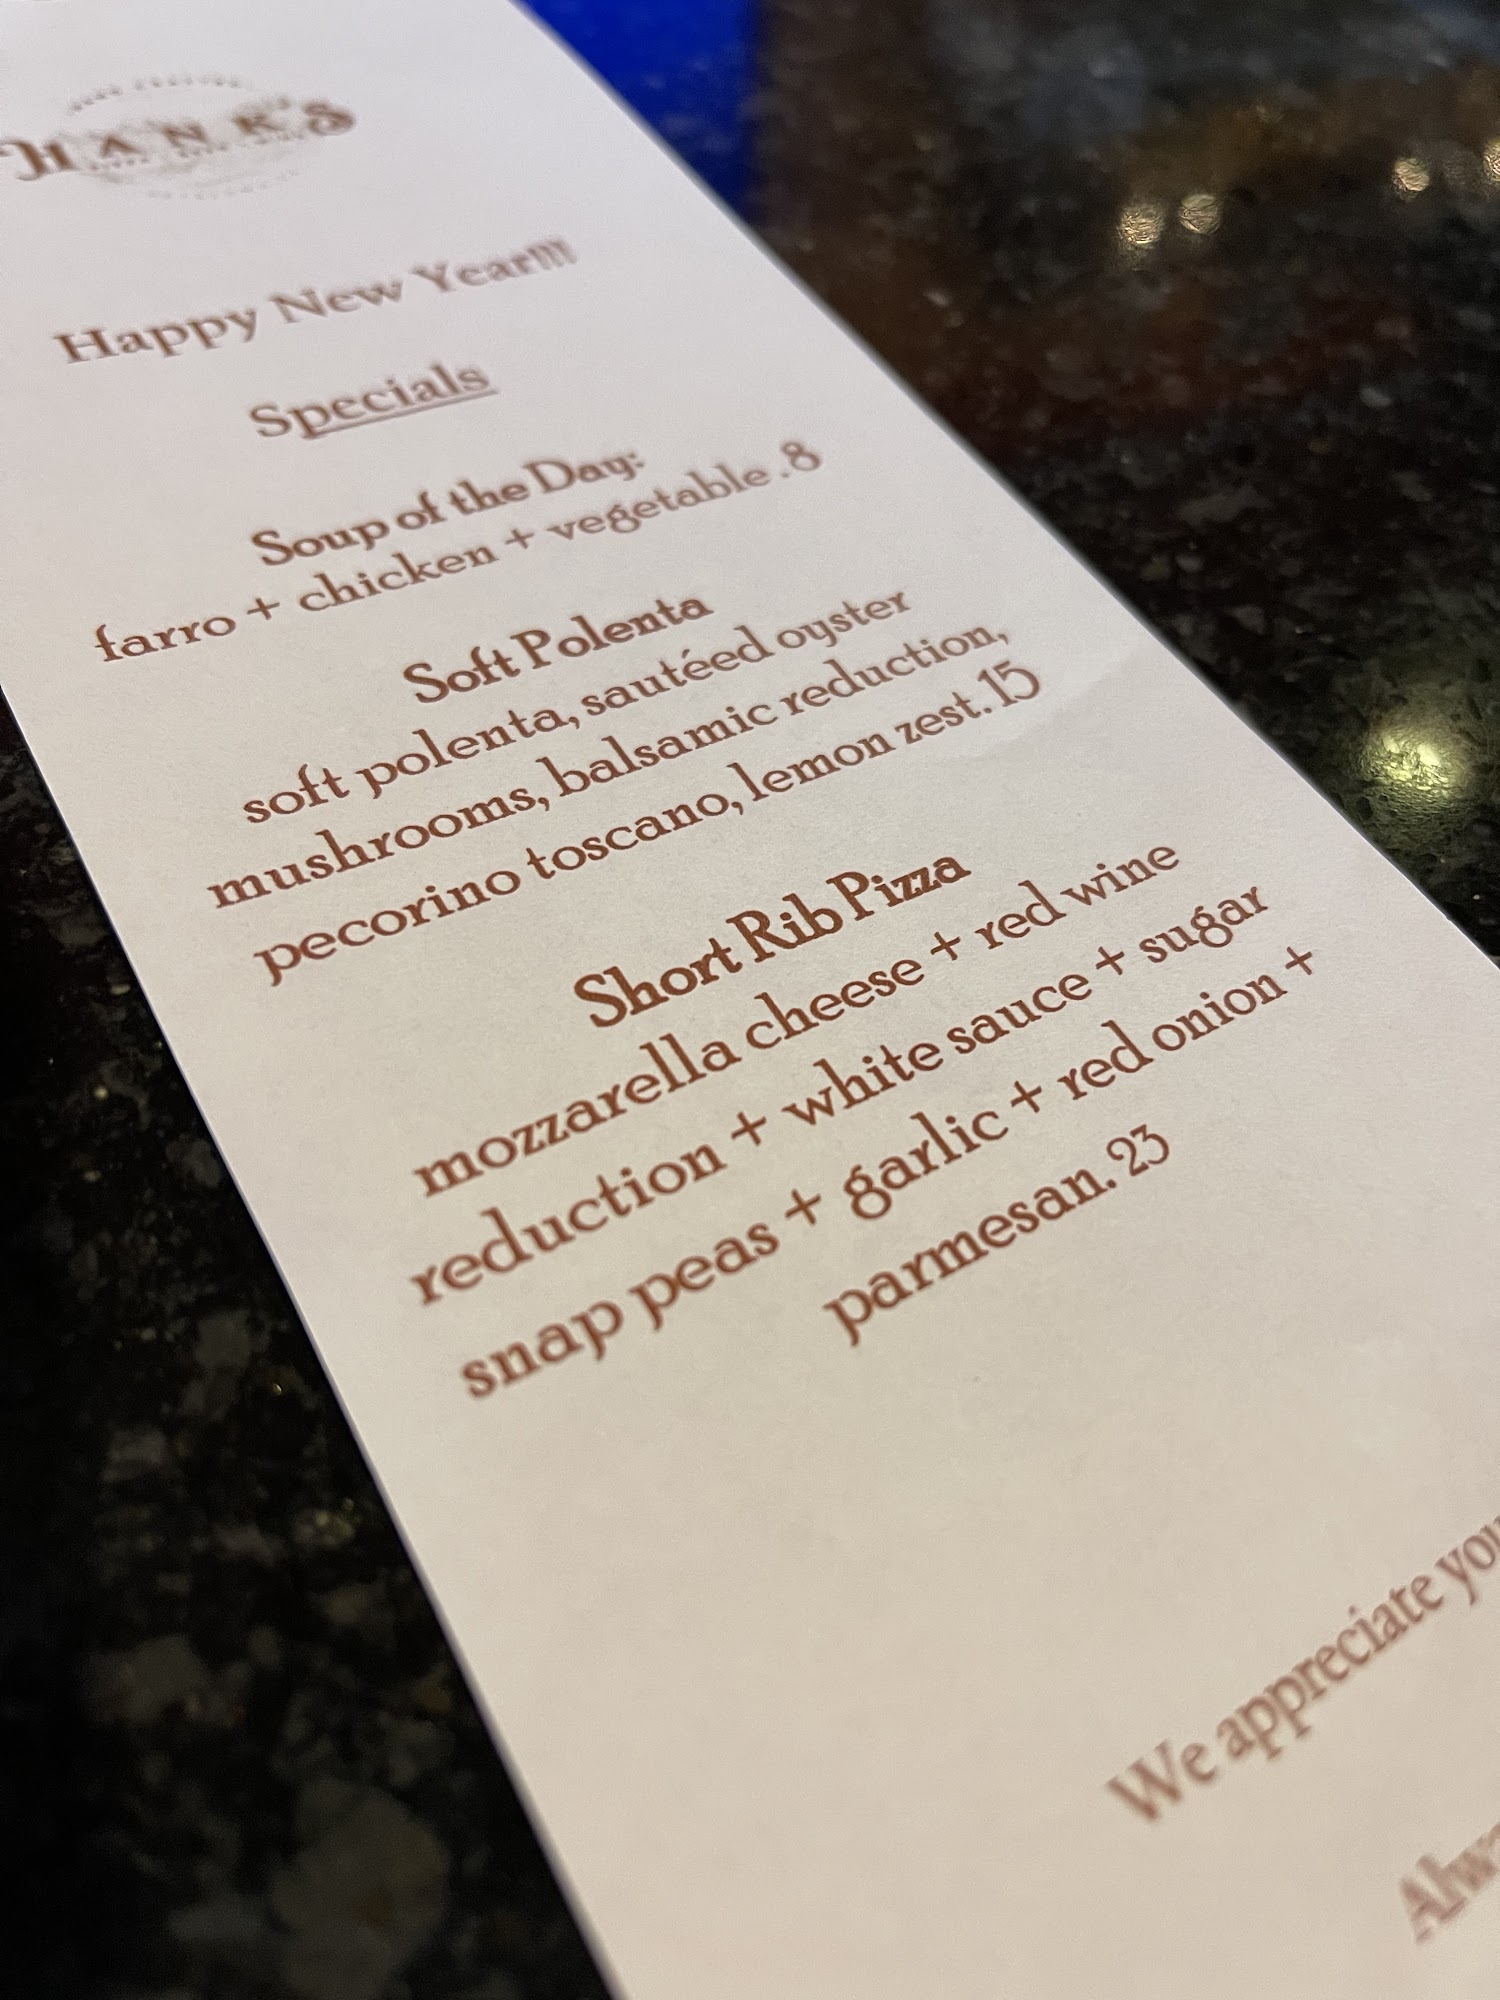 HANK'S
Happy New Year!!!!
Specials
Soup of the Day:
farro + chicken + vegetable .8
Soft Polenta
soft polenta, sautéed oyster
mushrooms, balsamic reduction,
pecorino toscano, lemon zest. 15
Short Rib Pizza
mozzarella cheese + red wine
reduction + white sauce + sugar
snap peas + garlic + red onion +
parmesan. 23
We appreciate